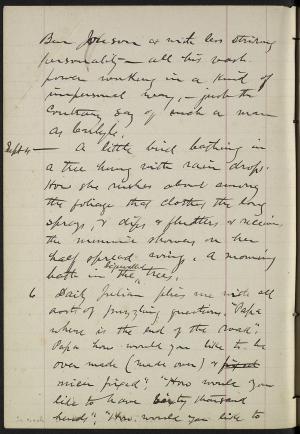 Ben Jonson a with less striking
personality — all his vast
power working in a kind of
impersonal way, — just the
contrary say of such a man
as Carlyle.
Sept 4 — A little bird bathing in
a tree hung with rain drops.
How she rushes about among
the foliage that clothes the long
sprays, & dips & flutters & receives
the miniature showers on her
half spread wing. A morning
bath in the bejewelled trees.
6 Daily Julian plies me with all
sorts of puzzling questions. "Papa
where is the end of the road";
Papa how would you like to be
over made (made over) &
nicer fixed"; "How would you
like to have sixty thousand
heads"; "How would you like to